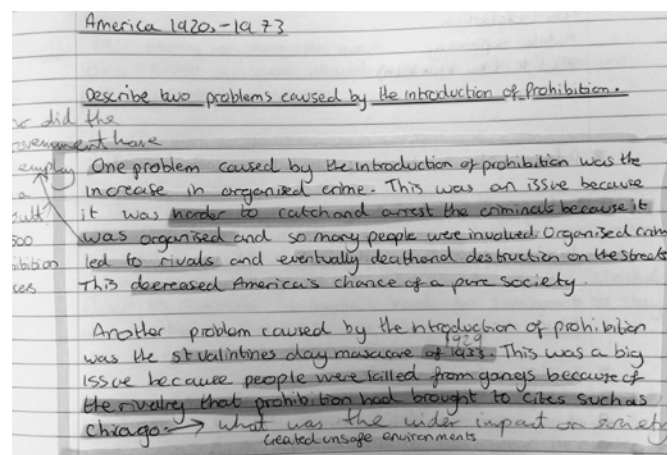 America 1920s-1973
Describe two problems caused by the introduction of prohibition.
did the
have
employ
a
One problem caused by the introduction of prohibition was the
increase in organised crime. This was an issue because
it was harder to catch and arrest the criminals because it
was organised and so many people were involved. Organised crime
led to rivals and eventually death and destruction on the streets
This decreased America's chance of a pure society.
Another problem caused by the introduction of prohibition
1929
was the st valintines day masacare of 1933. This was a big
issue because people were killed from gangs because of
the rivalry that prohibition had brought to cites such as
chicago. → what was the wider impact on society
created unsafe environments